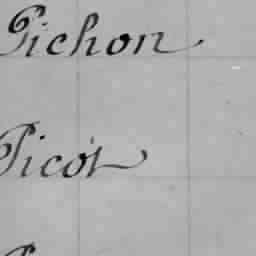 Pichon
Picot